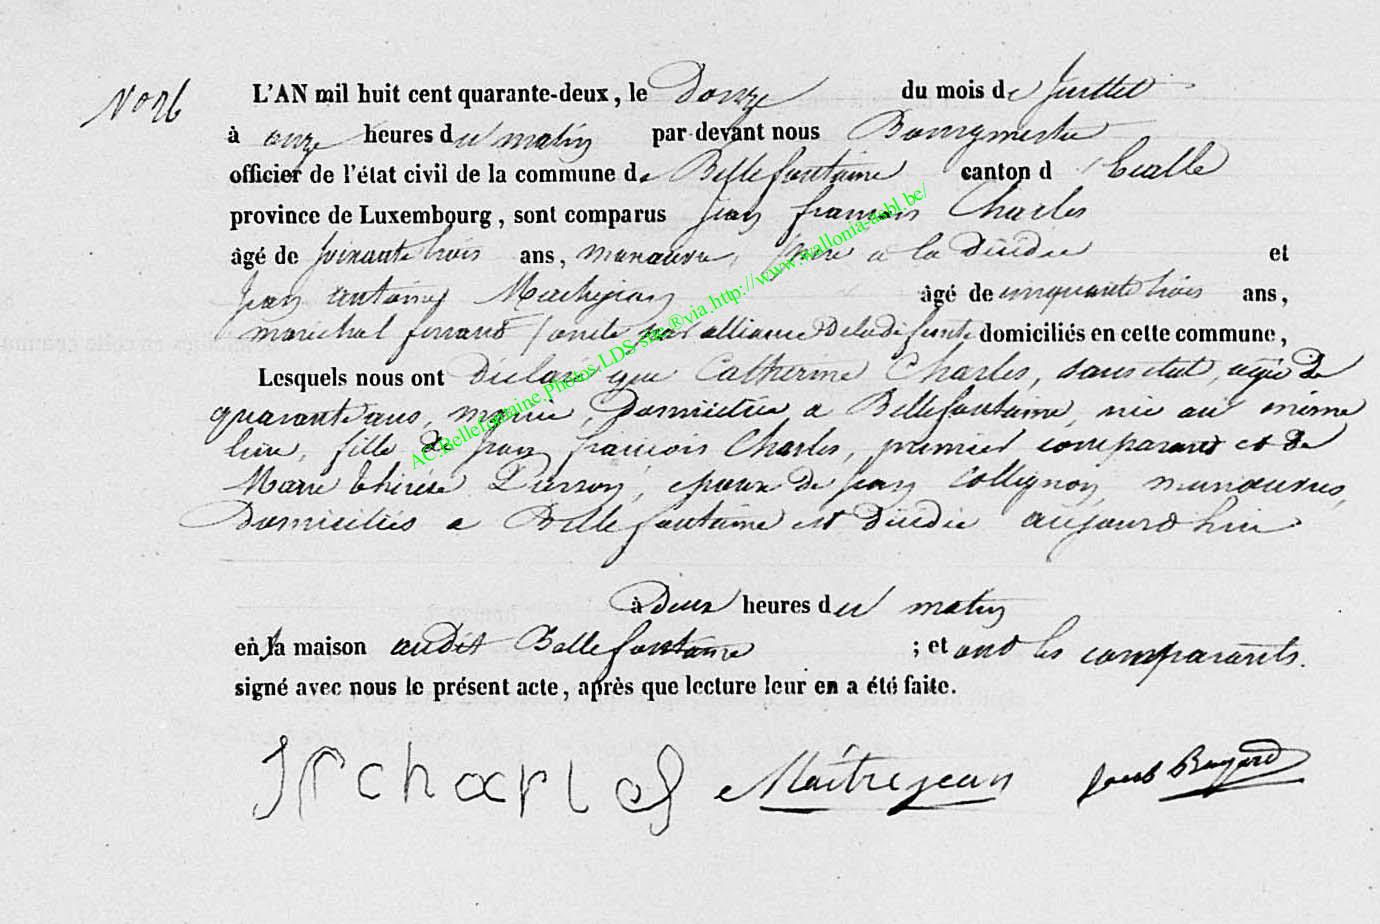 No 26
L'AN mil huit cent quarante-deux, le Douze du mois de Juillet
à onze heures du matin par devant nous Bourgmestre
officier de l'état civil de la commune de Bellefontaine canton d'Etalle
province de Luxembourg, sont comparus Jean françois Charles
âgé de soixante trois ans, manœuvre, père a la Décédée et
Jean antoine Maitrejean âgé de cinquante trois ans,
marechal ferrant, oncle par alliance De la defunte domiciliés en cette commune,
Lesquels nous ont Déclaré que Catherine Charles, sans état, agée De
quarante ans, mariée, Domiciliée a Bellefontaine, née au même
lieu, fille de Jean françois Charles, premier comparant et de
Marie thérèse Pierson, epouse De Jean Collignon, manœuvres,
Domiciliés a Bellefontaine est Décédée aujourd'hui
à Deux heures du matin
en sa maison audit Bellefontaine ; et ont les comparants.
signé avec nous le présent acte, après que lecture leur en a été faite.
Jf charles Maitrejean Bayard
AC.Bellefontaine.Photos.LDS-sarl®via.http://www.wallonia-asbl.be/